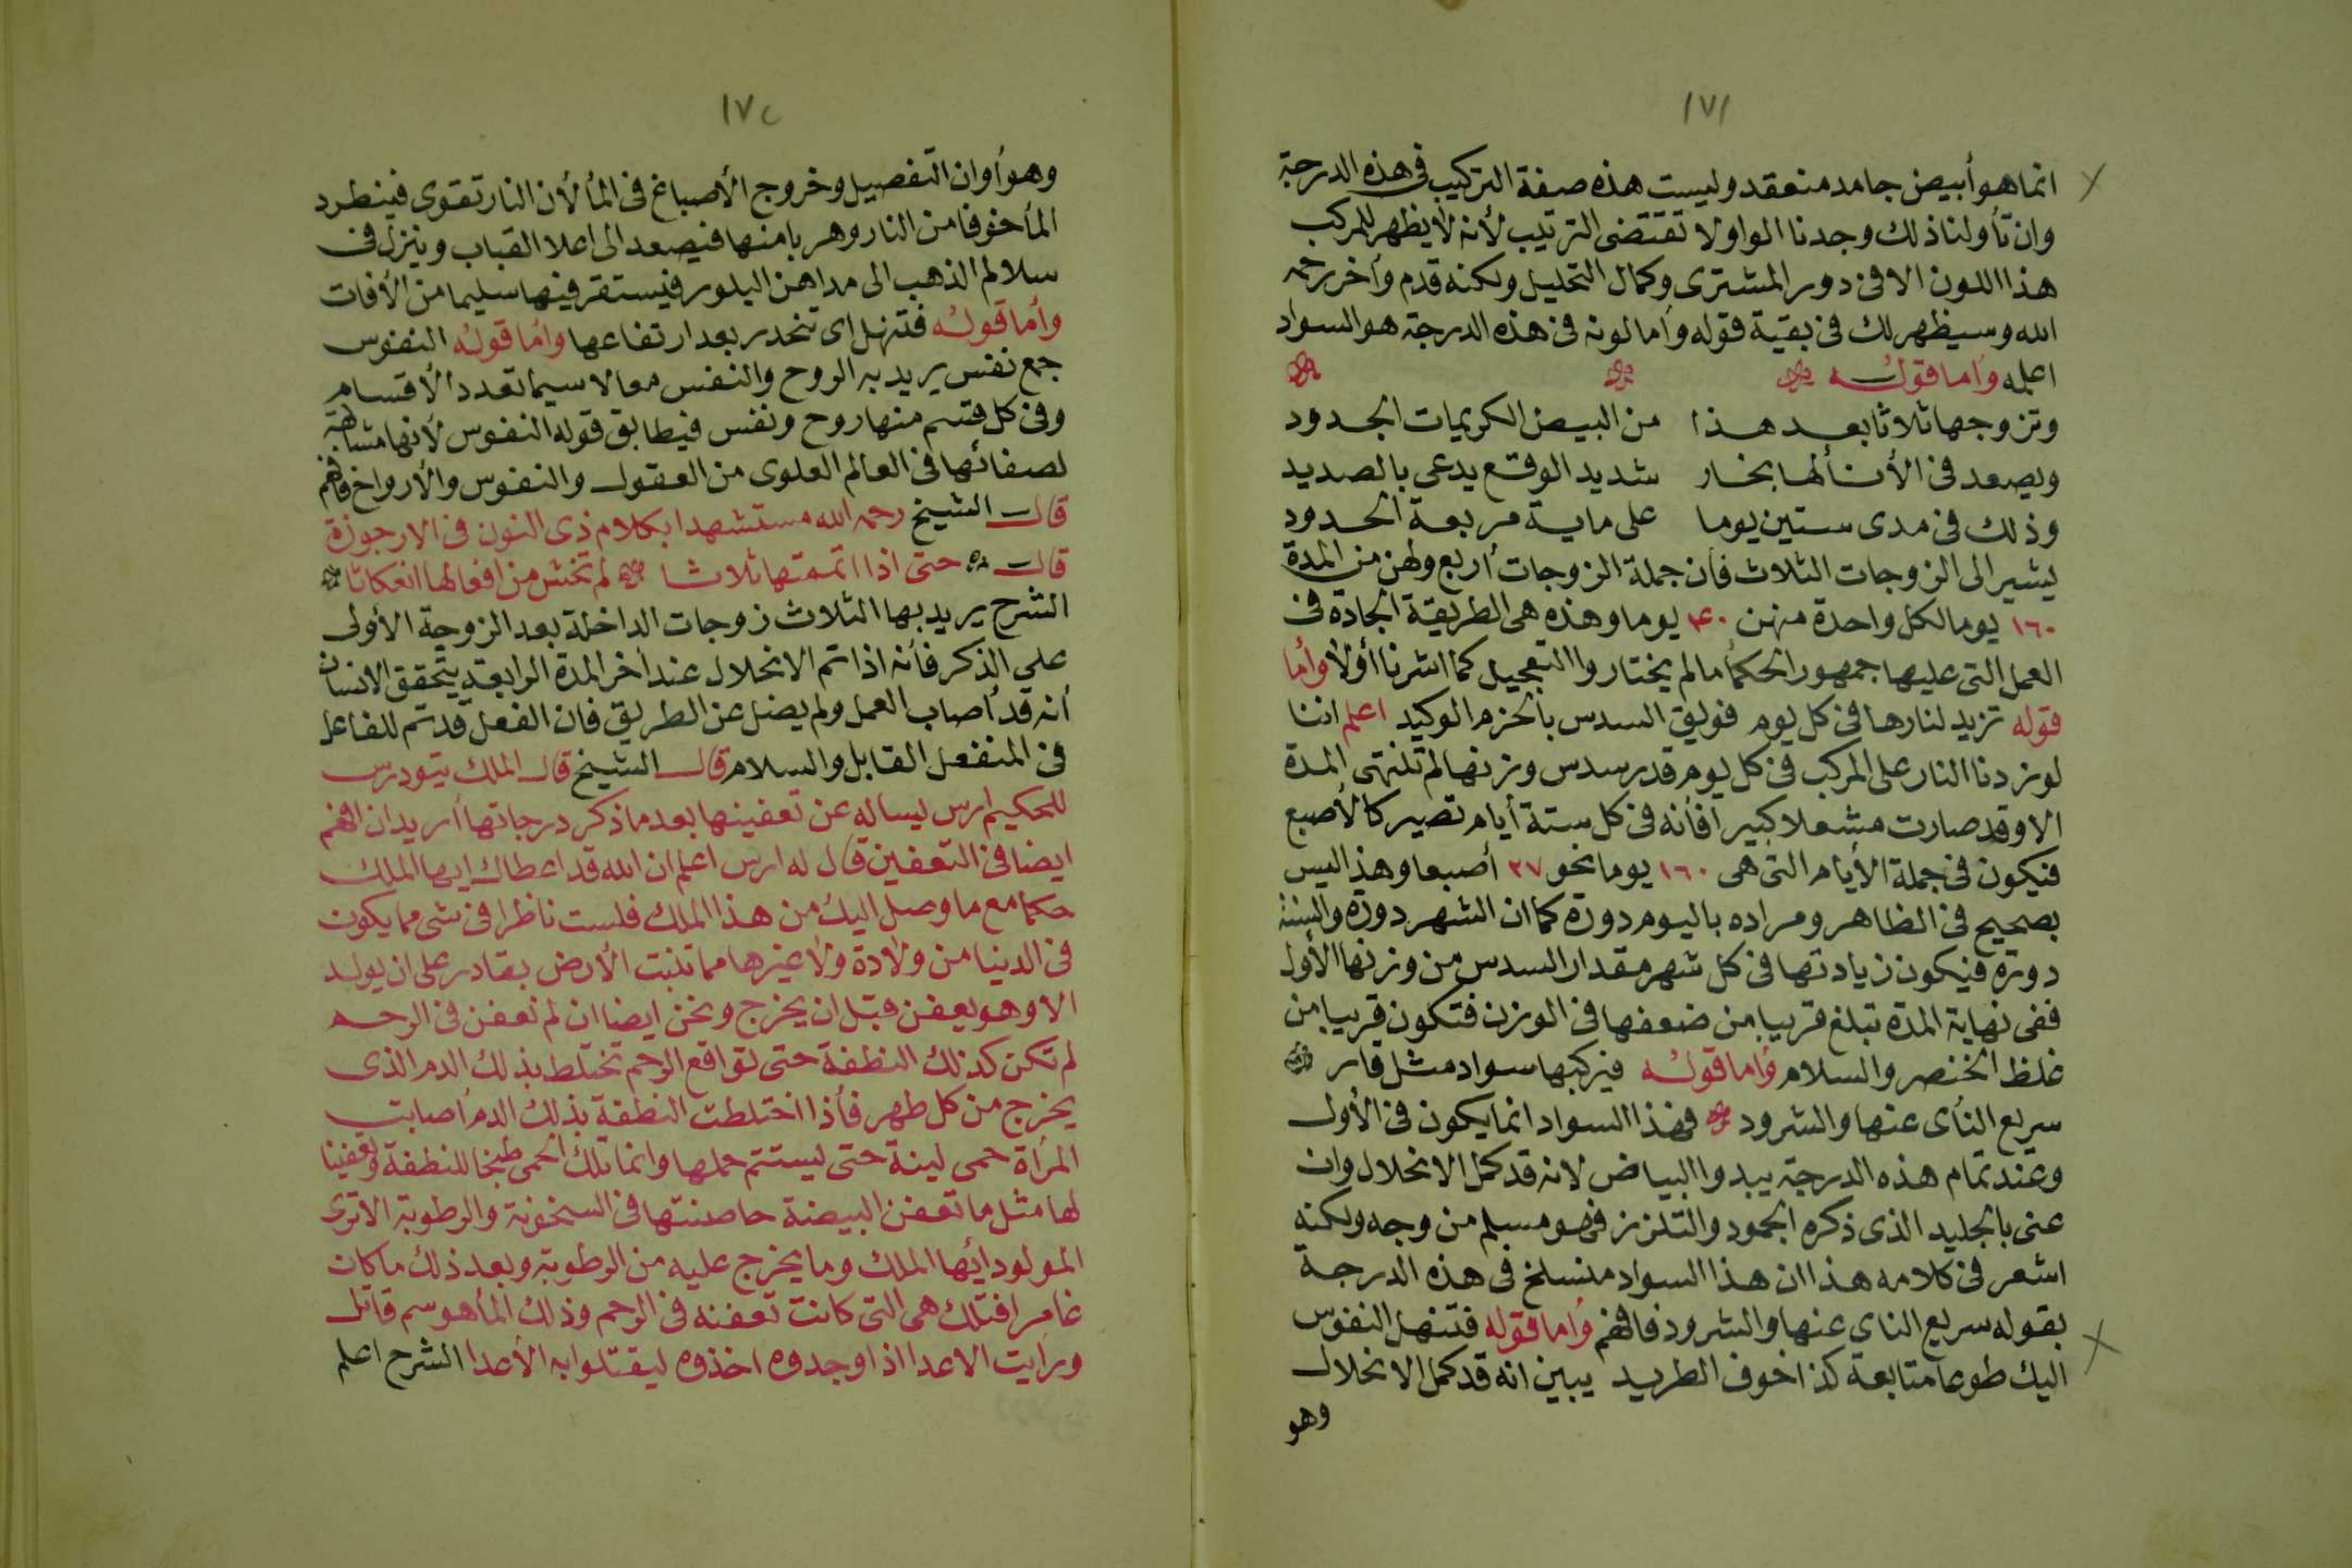 ١٧١
انما هو أبيض جامد منعقد وليست هذه صفة التركيب في هذه الدرجة
وان تأولنا ذلك وجدنا الواو لا تقتضى الترتيب لأنه لا يظهر للمركب
هذا اللون الا فى دور المشترى وكمال التحليل ولكنه قدم وأخر رحمه
الله وسيظهر لك فى بقية قوله وأما لونه فى هذه الدرجة هو السواد
اعلمه وأما قوله
وتزوجها ثلاثا بعد هذا من البيض الكريمات الجدود
ويصعد فى الأنا لها بخار شديد الوقع يدعى بالصديد
وذلك فى مدى ستين يوما على ماية مربعة الحدود
يشير الى الزوجات الثلاث فأن جملة الزوجات أربع ولهن من المدة
١٦٠ يوما لكل واحدة منهن ٤٠ يوما وهذه هى الطريقة الجادة فى
العمل التى عليها جمهور الحكمأ ما لم يختاروا التعجيل كما اشرنا أولا وأما
قوله تزيد لنارها فى كل يوم فويق السدس بالحزم الوكيد اعلم اننا
لو زدنا النار على المركب فى كل يوم قدر سدس وزنها لم تنتهى المدة
الا وقد صارت مشعلا كبيرا فأنه فى كل ستة أيام تصير كالأصبع
فيكون فى جملة الأيام التى هى ١٦٠ يوما نحو ٢٧ أصبعا وهذا ليس
بصحيح فى الظاهر ومراده باليوم دورة كما ان الشهر دورة والسنة
دورة فيكون زيادتها فى كل شهر مقدار السدس من وزنها الأول
ففى نهاية المدة تبلغ قريبا من ضعفها فى الوزن فتكون قريبا من
غلظ الخنصر والسلام وأما قوله فيركبها سواد مثل قار
سريع النأى عنها والشرود فهذا السواد انما يكون فى الأول
وعند تمام هذه الدرجة يبدوا البياض لانه قد كمل الانحلال وان
عنى بالجليد الذى ذكره الجمود والتلزز فهو مسلم من وجه ولكنه
اشعر فى كلامه هذا ان هذا السواد منسلخ فى هذه الدرجة
بقوله سريع الناى عنها والشرود فافهم وأما قوله فتنهل النفوس
اليك طوعا متابعة كذا خوف الطريد يبين انه قد كمل الانحلال
وهو
١٧٢
وهو أوان التفصيل وخروج الأصباغ فى المأ لأن النار تقوى فينطرد
المأ خوفا من النار وهربا منها فيصعد الى اعلا القباب وينزل فى
سلالم الذهب الى مداهن البلور فيستقر فيها سليما من الأفات
وأما قوله فتنهل اى تنحدر بعد ارتفاعها وأما قوله النفوس
جمع نفس يريد به الروح والنفس معا لا سيما تعدد الأقسام
وفى كل قسم منها روح ونفس فيطابق قوله النفوس لأنها مشابهة
لصفائها فى العالم العلوى من العقول والنفوس والأرواح فافهم
قال الشيخ رحمه الله مستشهدا بكلام ذى النون فى الارجوزة
قال حتى اذا اتممتها ثلاثا لم تخش من افعالها انعكاثا
الشرح يريد بها الثلاث زوجات الداخلة بعد الزوجة الأولى
على الذكر فأنه اذا تم الانحلال عند أخر المدة الرابعة يتحقق الانسان
أنه قد أصاب العمل ولم يضل عن الطريق فان الفعل قد تم للفاعل
فى المنفعل القابل والسلام قال الشيخ قال الملك تيودرس
للحكيم ارس ليساله عن تعفينها بعد ما ذكر درجاتها أريد ان افهم
ايضا فى التعفين قال له ارس اعلم ان الله قد اعطاك ايها الملك
حكما مع ما وصل اليك من هذا الملك فلست ناظرا فى شى مما يكون
فى الدنيا من ولادة ولا غيرها مما تنبت الأرض بقادر على ان يولد
الا وهو يعفن قبل ان يخرج ونحن ايضا ان لم نعفن فى الرحم
لم تكن كذلك النطفة حتى تواقع الرحم تختلط بذلك الدم الذى
يخرج من كل طهر فأذا اختلطت النطفة بذلك الدم أصابت
المرأة حمى لينة حتى يستتم حملها وانما تلك الحمى طبخا للنطفة وتعفينا
لها مثل ما تعفن البيضة حاضنتها فى السخونة والرطوبة الا ترى
المولود أيها الملك وما يخرج عليه من الرطوبة وبعد ذلك ما كان
غامرا فتلك هى التى كانت تعفنه فى الرحم وذلك المأ هو سم قاتل
ورأيت الاعدا اذا وجدوه اخذوه ليقتلوا به الأعدا الشرح اعلم